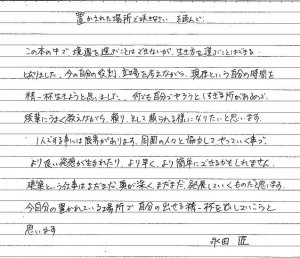 置かれた場所で咲きなさい を読んで.
この本の中で 境遇を選ぶことはできないが、生き方を選ぶことはできる.
とありました. 今の自分の役割、立場を考えながら、現在という自分の時間を
精一杯生きようと思いました. 何でも自分でやろうとしすぎる所があるので、
後輩にうまく教えながら、頼り、そして頼られる様になりたいと思います.
1人でする事には限界があります. 周囲の人々と協力してやっていく事で、
より良い発想が生まれたり、より早く、より簡単にできるかもしれません.
建築という仕事はまだまだ奥が深く、まだまだ発展していくものだと思います.
今自分の置かれている場所で自分の出せる精一杯を出していこうと
思います
永田 匠